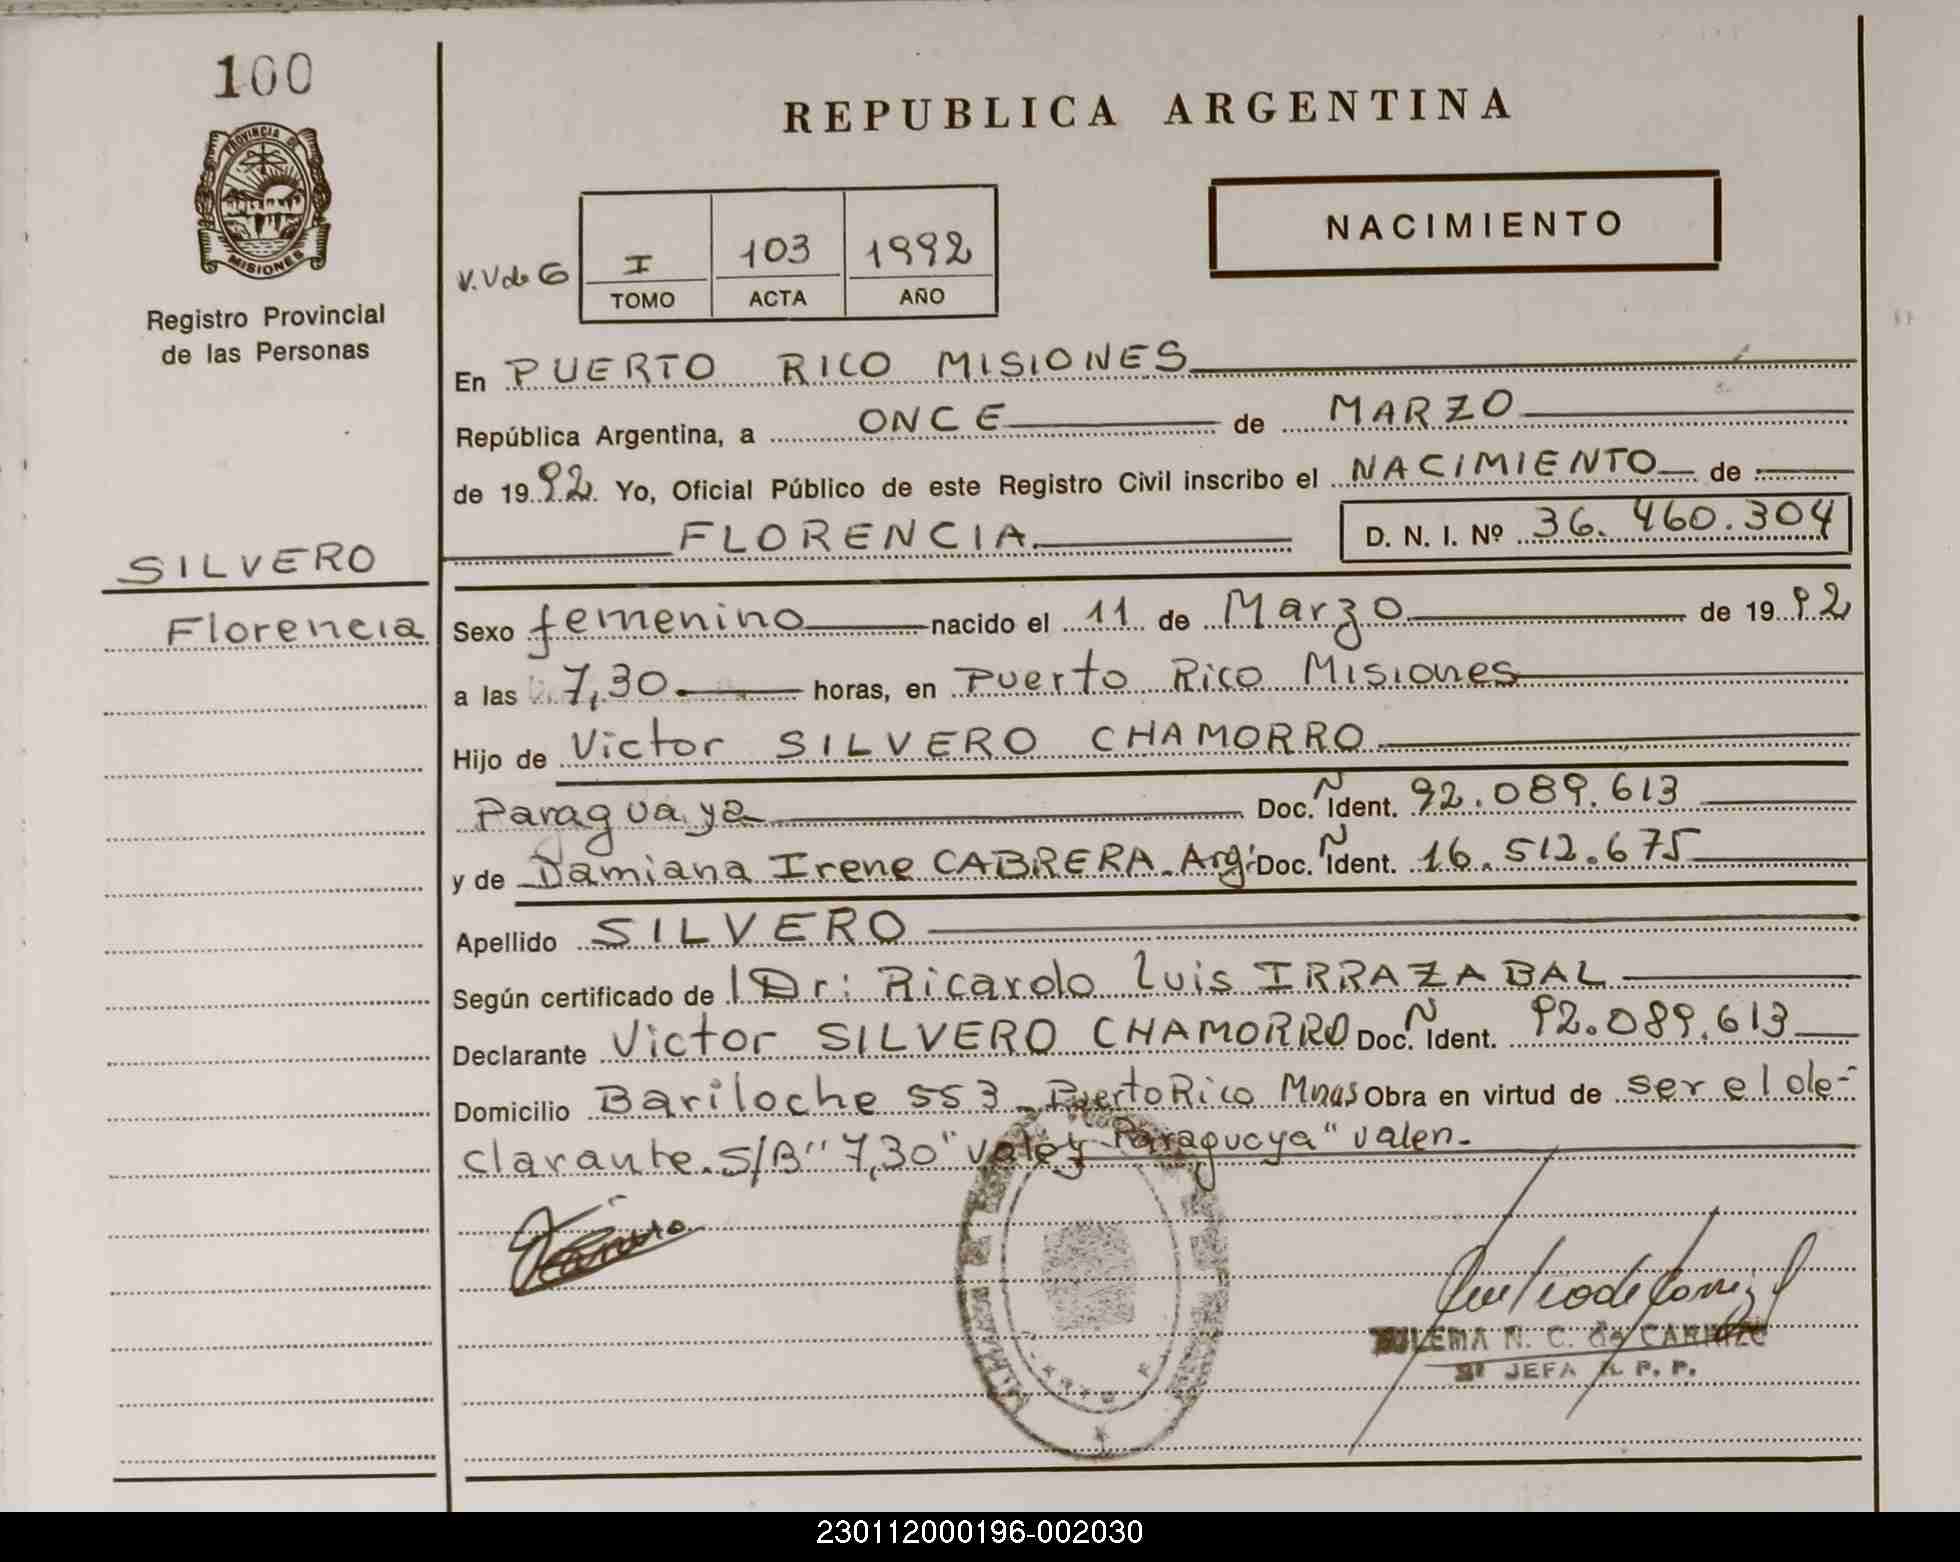 100
PROVINCIA DE
MISIONES
Registro Provincial
de las Personas
SILVERO
Florencia
REPUBLICA ARGENTINA
NACIMIENTO
V.V de G
I 103 1992
TOMO ACTA AÑO
En PUERTO RICO MISIONES
República Argentina, a ONCE de MARZO
de 1992. Yo, Oficial Público de este Registro Civil inscribo el NACIMIENTO de
FLORENCIA. D. N. I. Nº 36.460.304
Sexo femenino nacido el 11 de Marzo de 1992
a las 7,30. horas, en Puerto Rico Misiones
Hijo de Victor SILVERO CHAMORRO
Paraguaya Doc. Ñ Ident. 92.089.613
y de Damiana Irene CABRERA. Arg. Doc. Ñ Ident. 16.512.675
Apellido SILVERO
Según certificado de Dr: Ricardo Luis IRRAZABAL
Declarante Victor SILVERO CHAMORRO Doc. Ñ Ident. 92.089.613
Domicilio Bariloche 553 Puerto Rico Mnes Obra en virtud de ser el de-
clarante. S/B "7,30" vale y Paraguaya" valen.
N. C. de CARRIZO
JEFA R. P. P.
230112000196-002030